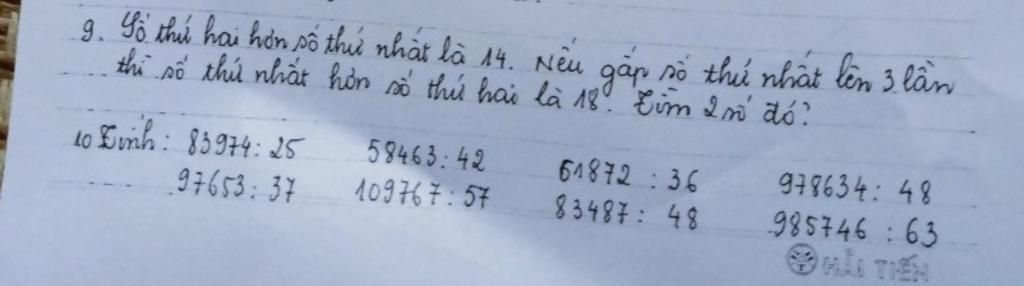 9. Số thứ hai hơn số thứ nhất là 14. Nếu gấp số thứ nhất lên 3 lần
thì số thứ nhất hơn số thứ hai là 18. Tìm 2 số đó?
10 Tính: 83974: 25 58463: 42 61872 : 36 978634: 48
97653: 37 109767: 57 83487: 48 985746 : 63
HẢI TIẾN